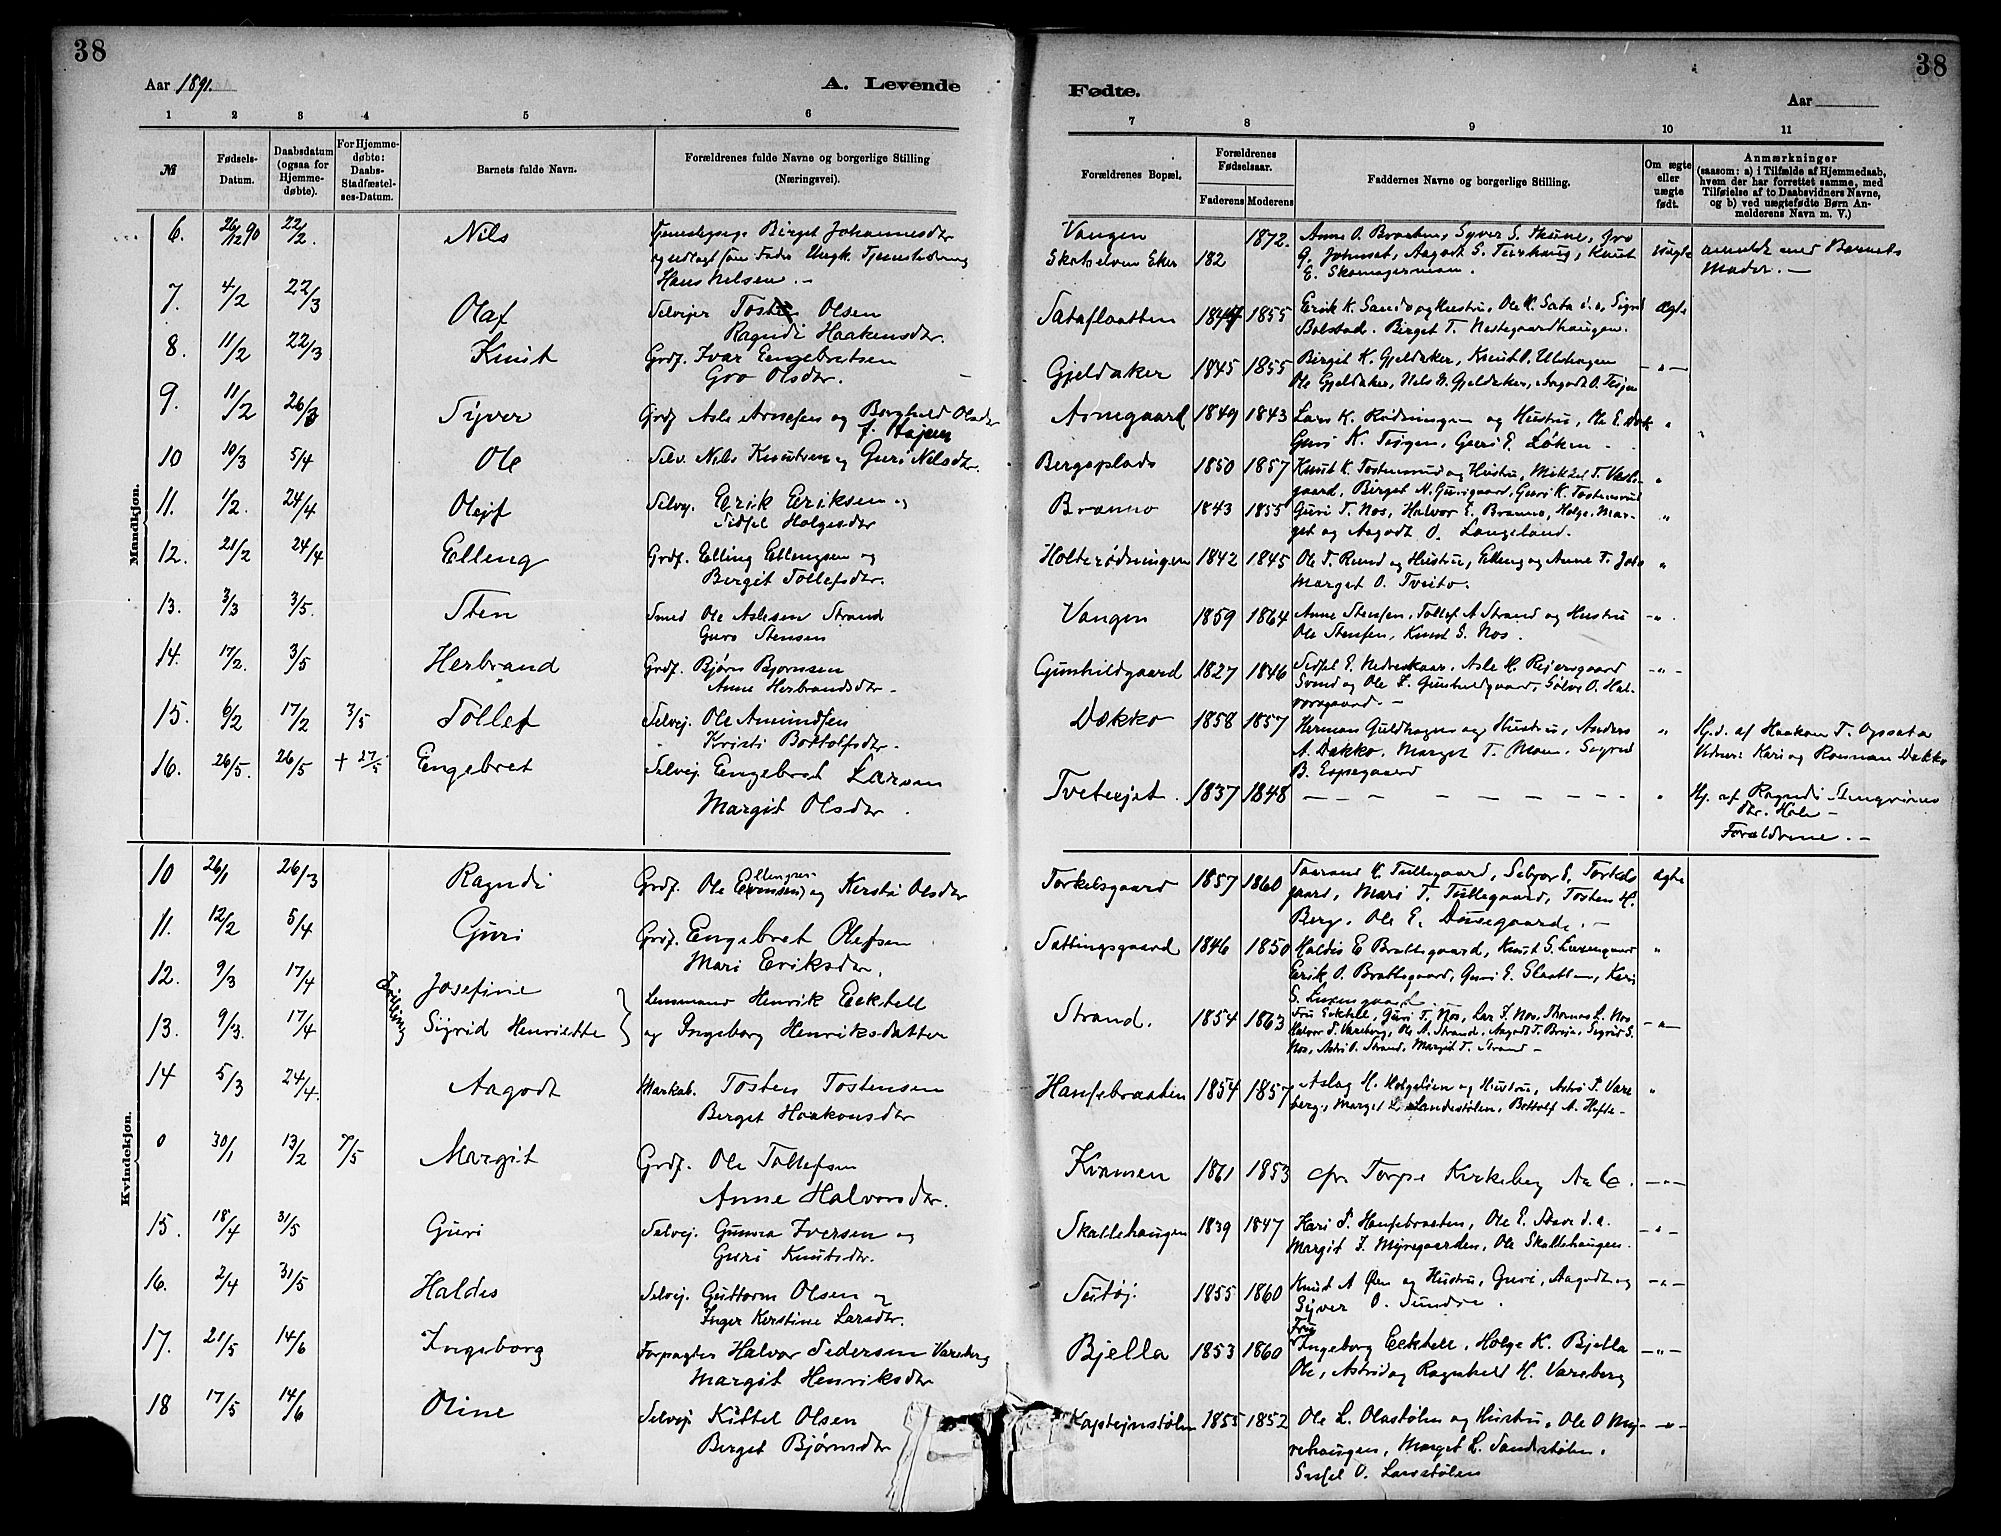 38
38
Aar 1891.
A. Levende
Fødte.
Aar
1 2 3 4 5 6
7 8 9 10 11
№
Fødsels-Datum.
Daabsdatum (ogsaa for Hjemme-døbte).
For Hjemme-døbte: Daabs-Stadfæstel-ses-Datum.
Barnets fulde Navn.
Forældrenes fulde Navne og borgerlige Stilling
(Næringsvei).
Forældrenes Bopæl.
Forældrenes Fødselsaar.
Faderens Moderens
Faddernes Navne og borgerlige Stilling.
Om ægte eller uægte født.
Anmærkninger
(saasom: a) i Tilfælde af Hjemmedaab,
hvem der har forrettet samme, med
Tilføielse af to Daabsvidners Navne,
og b) ved uægtefødte Børn An-
melderens Navn m. V.)
Mandkjøn.
6. 26/12 90 22/2. Nils Birget Johannesdtr Vangen 1872. Anne O. Braaten, Syver S. Skune, Gro
og udlagt som Fader Ungk. Skotselven Eker 182 Uægte anmeldt med Barnets
Hans Nelsen. Moder. —
7. 4/2 22/3 Olaf Selvejer Olsen Sataflaatten 1855 Erik K. Sando og Hustru, Ole K. Sata d.a., Sigrid Ægte
Ragndi Haakensdtr. Bolstad. Birget T. Nestegaardhaugen.
8. 11/2 22/3 Knut Grdf. Ivar Engebretsen Gjeldaker 1845 1855 Birgit K. Gjeldaker, Knut O. Ulshagen — „ —
Gro Olsdtr. Ole Gjeldaker, Nels G. Gjeldaker, Aagodt O.
9. 11/2 26/3 Syver Grdf Asle Arnesen og Borghild Olsdtr Arnegaard 1849 1843 Lars K. Rødningen og Hustru, Ole E. „
Guri K. Guri E. Løken
10 10/3 5/4 Ole Selv. Nils Knutsen og Guri Nilsdtr. Bergsplads 1850 1857 Knut K. Tostensrud og Hustru, Mikkel T. „
Birget N. Gurigaard, Guri K. Tostensrud
11. 1/2. 24/4 Olejf Selvej. Erik Eriksen og Branno 1843 1855 Guri T. Nos, Halvor E. Branno, Holge, Mar- „
Sidsel Holgesdtr get og Aagodt O. Langeland.
12. 21/2 24/4 Elleng Grdf. Elling Ellengsen og Holterødningen 1842 1845 Ole T. Rund og Hustru, Elleng og Anne T. „
Bergit Tollefsdtr. Marget O. Tveito.
13. 3/3 3/5. Sten Smed Ole Aslesen Strand Vangen 1859 1864 Anne Stensen, Tollef A Strand og Hustru — „ —
Guro Stensen Ole Stensen, Knut S. Nos.
14. 17/2. 3/5 Herbrand Grdf. Bjørn Bjornsen Gunhildgaard 1827 1846 Sidsel E. Nedreskaar, Asle H. Reiersgaard — „ —
Anne Herbrandsdtr — Svend og Ole Gunhildgaard, Sølve O. Hal-
vorsgaard. —
15. 6/2 17/2 3/5 Tollef Selvej. Ole Amundsen Dækko 1858 1857 Herman Guldhagen og Hustru, Anders „ Hj.d. af Haakon T. Opsata
Kristi Bottolfsdtr. A. Dækko. Marget T. Moen, Sigrid Vidner: Kari og Rosman Dækko
B. Espegaard
16. 26/5. 26/5 + 27/5 Engebret Selvej. Engebret Larsen Tveterjet. 1837 1848 „ Hj. af Ragndi
Margit Olsdtr dtr. Hole —
Forældrene. —
Kvindekjøn.
10 26/1 26/3 Ragndi Grdf. Ole Ellengsen og Kersti Olsdtr Torkelsgaard 1857 1860 Taarand K. Tullegaard, Sebjor S. Torkels- Ægte
gaard, Mari T. Tullegaard, Tosten H.
Berg, Ole E. —
11. 12/2 5/4 Guri Grdf. Engebret Olefsen Sattingsgaard 1846 1850 Haldis E Brattegaard, Knut S. „
Mari Eriksdtr. Erik O. Brattegaard, Guri E. Slaatten, Kari
12. 9/3 17/4 Josefine Lensmand Henrik Eckhell Strand. 1854 1863 Fru Eckhell, Guri T. Nos, Lar Nos, Thomas L. Nos — „ —
Tvilling
13. 9/3. 17/4 Sigrid Henriette og Ingeborg Henriksdatter Halvor P. Vareberg, Ole A. Strand, Aagodt T. Sigrid S.
Nos, Astri O. Strand, Margit T. Strand —
14 5/3 24/4. Aagodt Markab. Tosten Tostensen Hansebraaten 1854 1857 Aslag H. Holgelien og Hustru, Astri P. Vare- „
Berget Haakonsdtr berg, Marget L. Landestølen, Bottolf A. Hefte —
0 30/1 13/2 7/5 Margit Grdf. Ole Tollefsen Kvamen 1861 1853 cfr Torpe Kirkebog — „ —
Anne Halvorsdtr.
15. 18/4 31/5 Guri Selvej. Gunnar Iversen og Skallehaugen 1839 1847 Kari P. Hansebraaten, Ole E. d.a. — „ —
Guri Knutsdtr. Margit Myregaarden, Ole Skallehaugen.
16. 2/4 31/5 Haldis Selvej. Guttorm Olsen og Sutøj. 1855 1860 Knut A Øen og Hustru, Guri, Aagodt og — „ —
Inger Kerstine Larsdtr. Syver O. Sundre.
17. 21/5 14/6 Ingeborg Forpagter Halvor Pedersen Vareberg Bjella 1853 1860 Fru Ingeborg Eckhell, Holge K. Bjella — „ —
Margit Henriksdtr Ole, Astrid og Ragnhild H. Vareberg
18 17/5 14/6 Oline Selvej Kittel Olsen Kaptejnstølen 1855 1852 Ole L. Olastølen og Hustru, Ole O My- — „ —
Berget Bjørnsdtr rehaugen, Marget L. Sandestølen.
Sissel O. Larsstølen